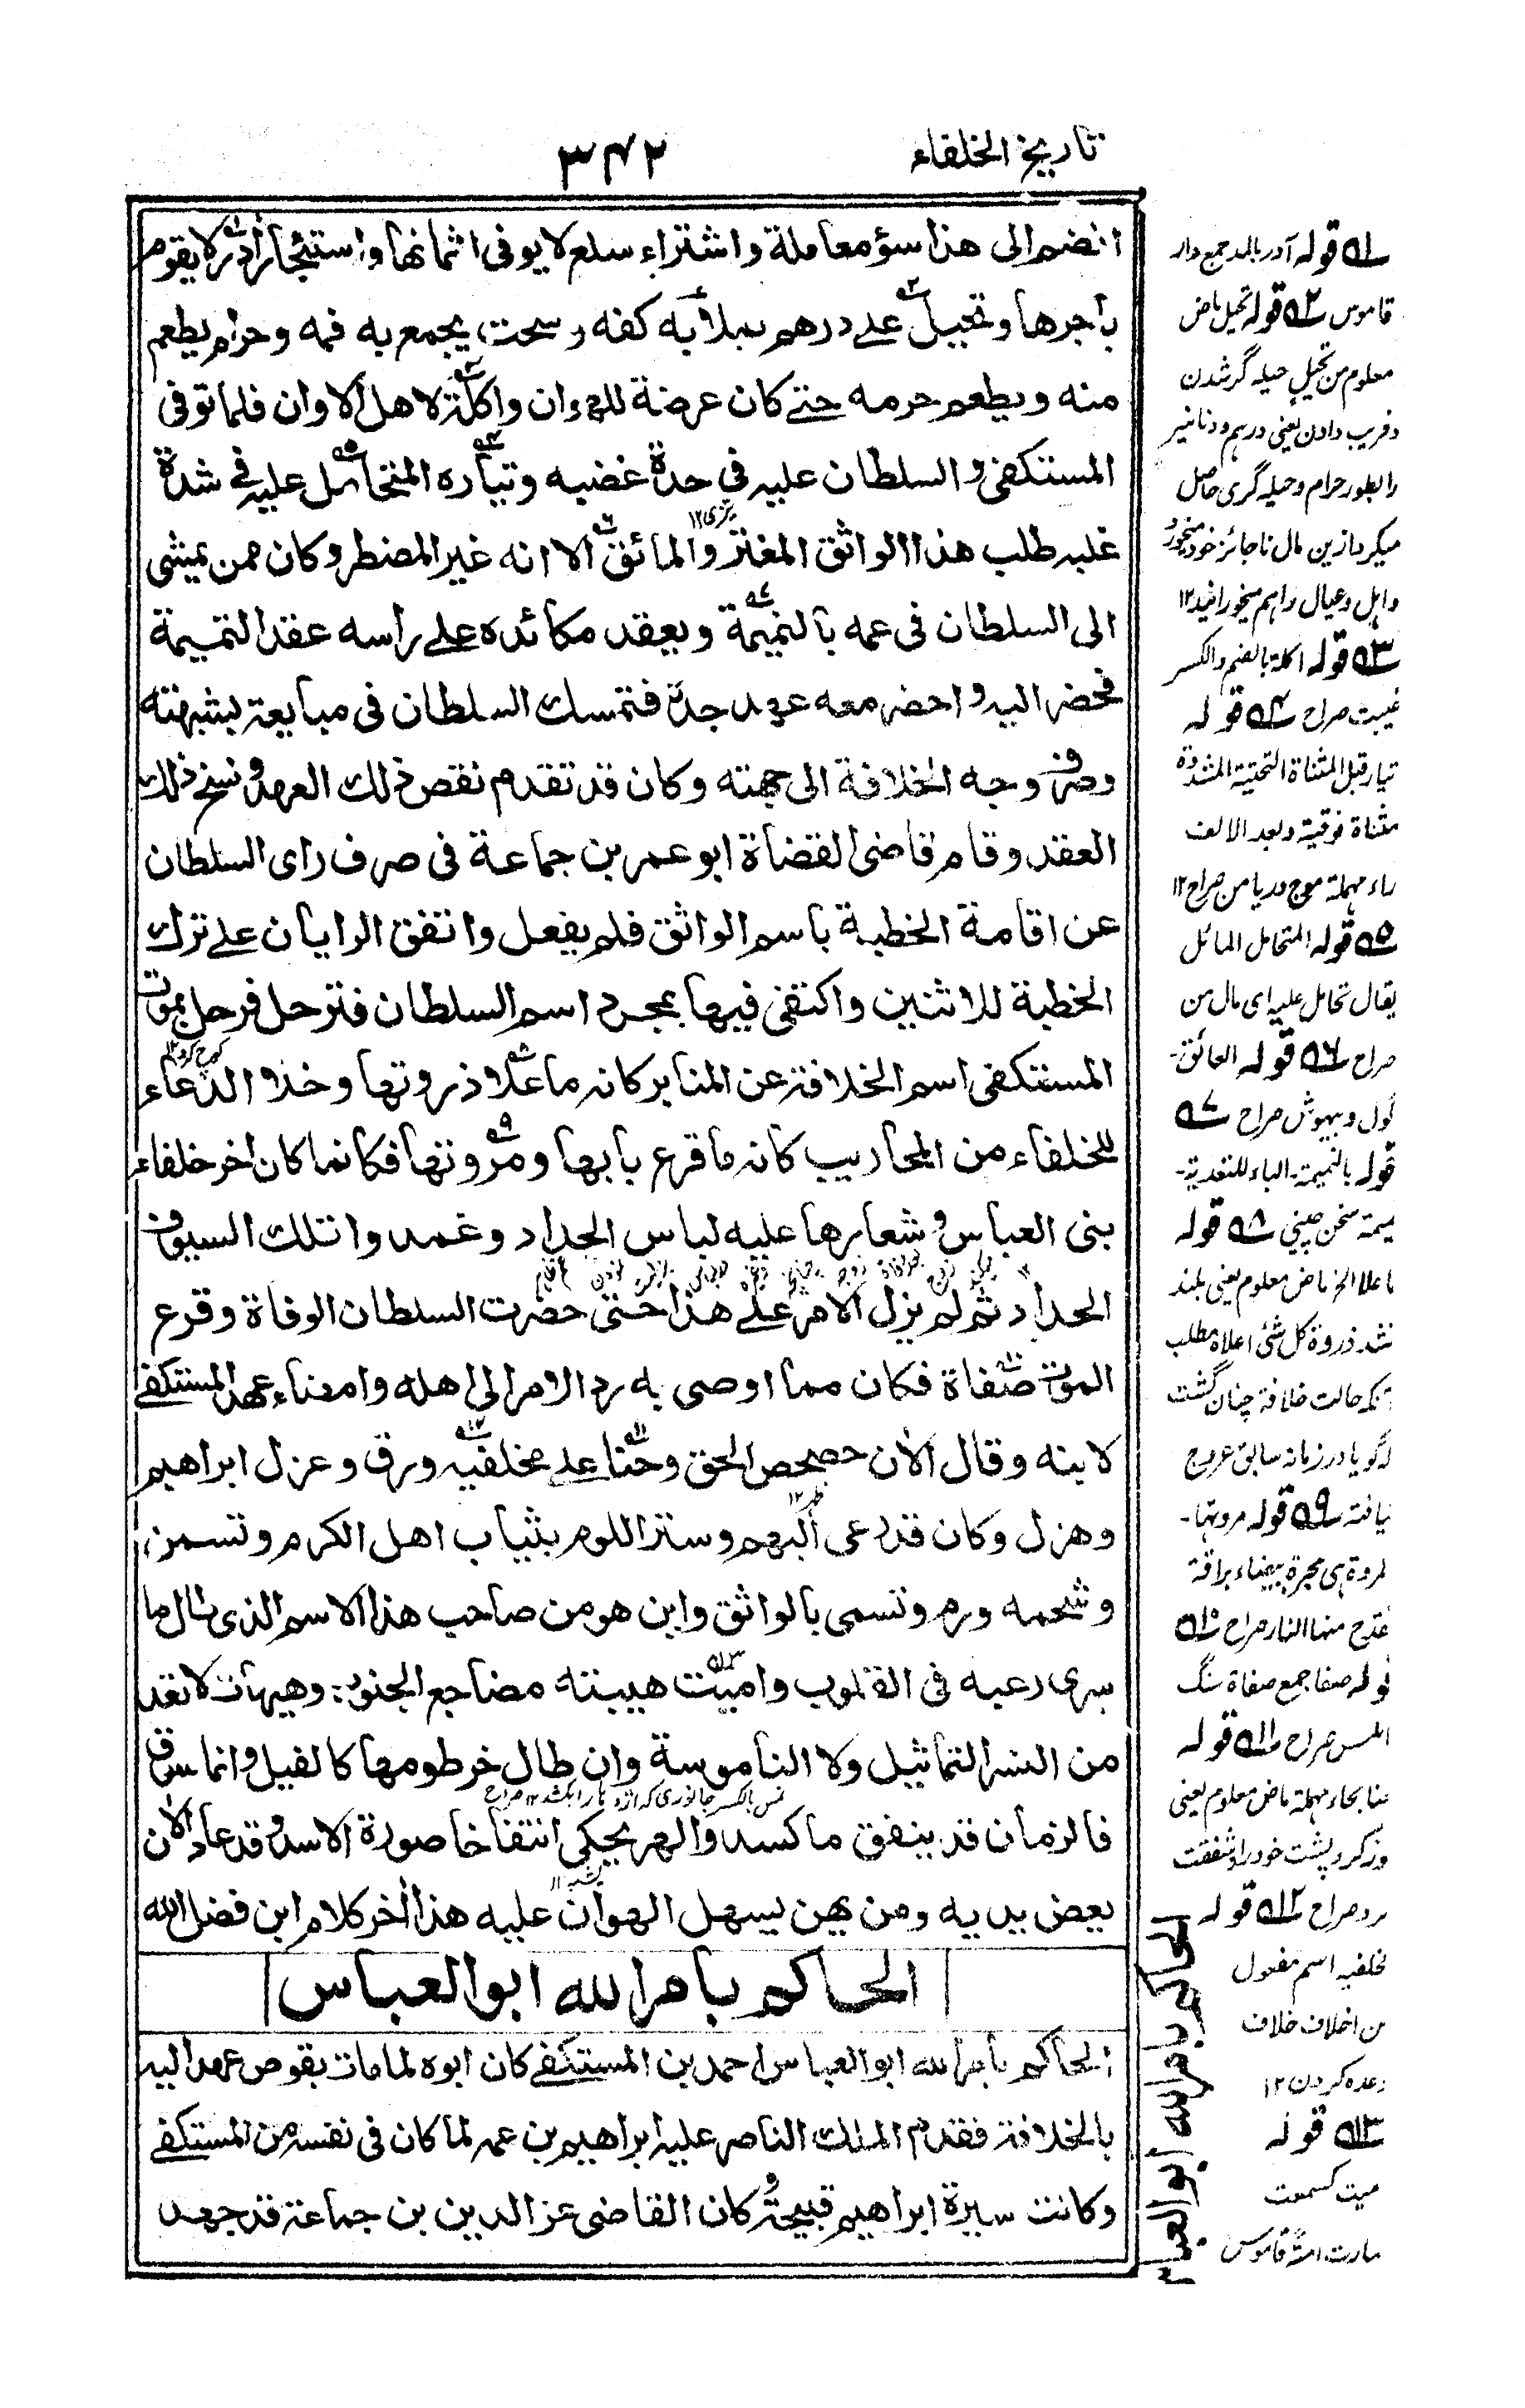 تاريخ الخلفاء
۳۴۲
انضم الى هذا سؤ معاملة واشتراء سلع لا يوفى اثمانها واستئجار أدر لا يقوم
بأجرها وتحيل على درهم يملأ به كفه وسحت يجمع به فمه وحرام يطعم
منه ويطعم حرمه حتى كان عرضة للهوان واكلة لاهل الاوان فلما توفى
المستكفى والسلطان عليه فى حدة غضبه وتياره المتحامل عليه فى شدة
غلبه طلب هذا الواثق المغتر والمائق الا انه غير المضطر وكان ممن يمشى
الى السلطان فى عمه بالنميمة ويعقد مكائده على راسه عقد التميمة
فحضر اليه واحضر معه عهد جده فتمسك السلطان فى مبايعته بشبهته
وصرف وجه الخلافة الى جهته وكان قد تقدم نقض ذلك العهد ونسخ ذلك
العقد وقام قاضى القضاة ابو عمر بن جماعة فى صرف راى السلطان
عن اقامة الخطبة باسم الواثق فلم يفعل واتفق الرايان على ترك
الخطبة للاثنين واكتفى فيها بمجرد اسم السلطان فترحل فرحل بموت
المستكفى اسم الخلافة عن المنابر كانه ما علا ذروتها وخلا الدعاء
للخلفاء من المحاريب كانه ما قرع بابها ومروتها فكانما كان أخر خلفاء
بنى العباس وشعارها عليه لباس الحداد وغمدوا تلك السيوف
الحداد ثم لم يزل الامر على هذا حتى حضرت السلطان الوفاة وقرع
الموت صفاة فكان مما اوصى به رد الامر الى اهله وامضاء عهد المستكفى
لابنه وقال الأن حصحص الحق وحنا على مخلفيه ورق وعزل ابراهيم
وهزل وكان قد رعى البهم وستر اللوم بثياب اهل الكرم وتسمن
وشحمه ورم وتسمى بالواثق واين هو من صاحب هذا الاسم الذى طال ما
سرى رعبه فى القلوب واميت هيبته مضاجع الجنوب وهيهات لا تعد
من النسر التماثيل ولا الناموسة وان طال خرطومها كالفيل وانما سوق
فالزمان قد ينفق ما كسد والهر يحكى انتفاخا صورة الاسد وقد عاد الأن
يعض يديه ومن يهن يسهل الهوان عليه هذا أخر كلام ابن فضل الله
الحاكم بامر الله ابو العباس
الحاكم بامر الله ابو العباس احمد بن المستكفى كان ابوه لما مات بقوص عهد اليه
بالخلافة فقدم الملك الناصر عليه ابراهيم بن عمه لما كان فى نفسه من المستكفى
وكانت سيرة ابراهيم قبيحة وكان القاضى عز الدين بن جماعة قد جهد
۱ه قوله آدر بالمد جمع دار
قاموس ۲ه قوله تحيل ماض
معلوم من تحيل حيله گر شدن
و فريب دادن يعنى درهم و دنانير
را بطور حرام و حيله گرى حاصل
ميكرد ازين مال ناجائز خود ميخورد
و اهل و عيال را هم ميخورانيد ۱۲
۳ه قوله اكلة بالضم والكسر
غيبت صراح ۴ه قوله
تيار قبل المثناة التحتية المشددة
مثناة فوقية وبعد الالف
راء مهملة موج دريا من صراح ۱۲
۵ه قوله المتحامل المائل
يقال تحامل عليه اى مال من
صراح ۶ه قوله المائق
گول و بيهوش صراح ۷ه
قوله بالنميمة الباء للتعدية
نميمة سخن چينى ۸ه قوله
ما علا الخ ماض معلوم يعنى بلند
نشد ذروة كل شئ اعلاه مطلب
آنكه حالت خلافة چنان گشت
كه گويا در زمانه سابق عروج
نيافته ۹ه قوله مروتها
المروة هى حجرة بيضاء براقة
تقدح منها النار صراح ۱۰ه
قوله صفا جمع صفاة سنگ
املس صراح ۱۱ه قوله
حنا بحاء مهملة ماض معلوم يعنى
كرد صراح ۱۲ه قوله
مخلفيه اسم مفعول
من اخلاف خلاف
وعده كردن ۱۲
۱۳ه قوله
ميت كسمعت
قاموس
الحاكم بامر الله ابو العباس